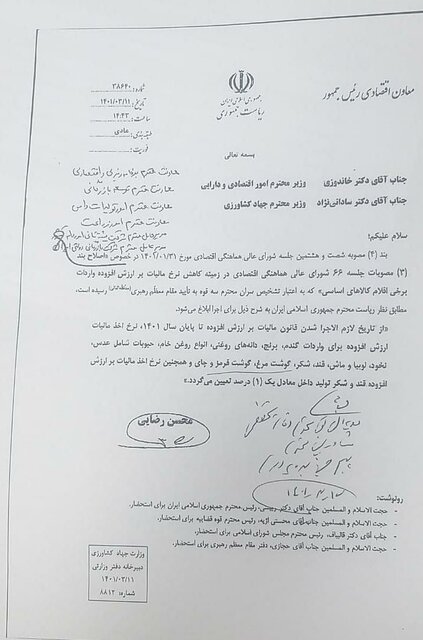 معاون اقتصادی رئیس جمهور
جمهوری اسلامی ایران
ریاست جمهوری
شماره: ۳۸۶۴۰
تاریخ: ۱۴۰۱/۰۳/۱۱
ساعت: ۱۴:۴۳
طبقه‌بندی: عادی
فوریت:
بسمه تعالی
جناب آقای دکتر خاندوزی وزیر محترم امور اقتصادی و دارایی
جناب آقای دکتر ساداتی‌نژاد وزیر محترم جهاد کشاورزی
سلام علیکم؛
بند (۴) مصوبه شصت و هشتمین جلسه شورای عالی هماهنگی اقتصادی مورخ ۱۴۰۲/۰۱/۳۱ در خصوص «اصلاح بند
(۳) مصوبات جلسه ۶۶ شورای عالی هماهنگی اقتصادی در زمینه کاهش نرخ مالیات بر ارزش افزوده واردات
برخی اقلام کالاهای اساسی» که به اعتبار تشخیص سران محترم سه قوه به تأیید مقام معظم رهبری رسیده است،
مطابق نظر ریاست محترم جمهوری اسلامی ایران به شرح ذیل برای اجرا ابلاغ می‌شود.
«از تاریخ لازم الاجرا شدن قانون مالیات بر ارزش افزوده تا پایان سال ۱۴۰۱، نرخ اخذ مالیات
ارزش افزوده برای واردات گندم، برنج، دانه‌های روغنی، انواع روغن خام، حبوبات شامل عدس،
نخود، لوبیا و ماش، قند، شکر، گوشت مرغ، گوشت قرمز و چای و همچنین نرخ اخذ مالیات بر ارزش
افزوده قند و شکر تولید داخل معادل یک (۱) درصد تعیین می‌گردد.»
محسن رضایی
رونوشت:
- حجت الاسلام و المسلمین جناب آقای دکتر رییسی، رئیس محترم جمهوری اسلامی ایران برای استحضار.
- حجت الاسلام و المسلمین جناب آقای محسنی اژیه، رئیس محترم قوه قضاییه برای استحضار.
- جناب آقای دکتر قالیباف، رئیس محترم مجلس شورای اسلامی برای استحضار.
- حجت الاسلام و المسلمین جناب آقای حجازی، دفتر مقام معظم رهبری برای استحضار.
وزارت جهاد کشاورزی
دبیرخانه دفتر وزارتی
۱۴۰۱/۰۳/۱۱
شماره: ۸۸۱۲